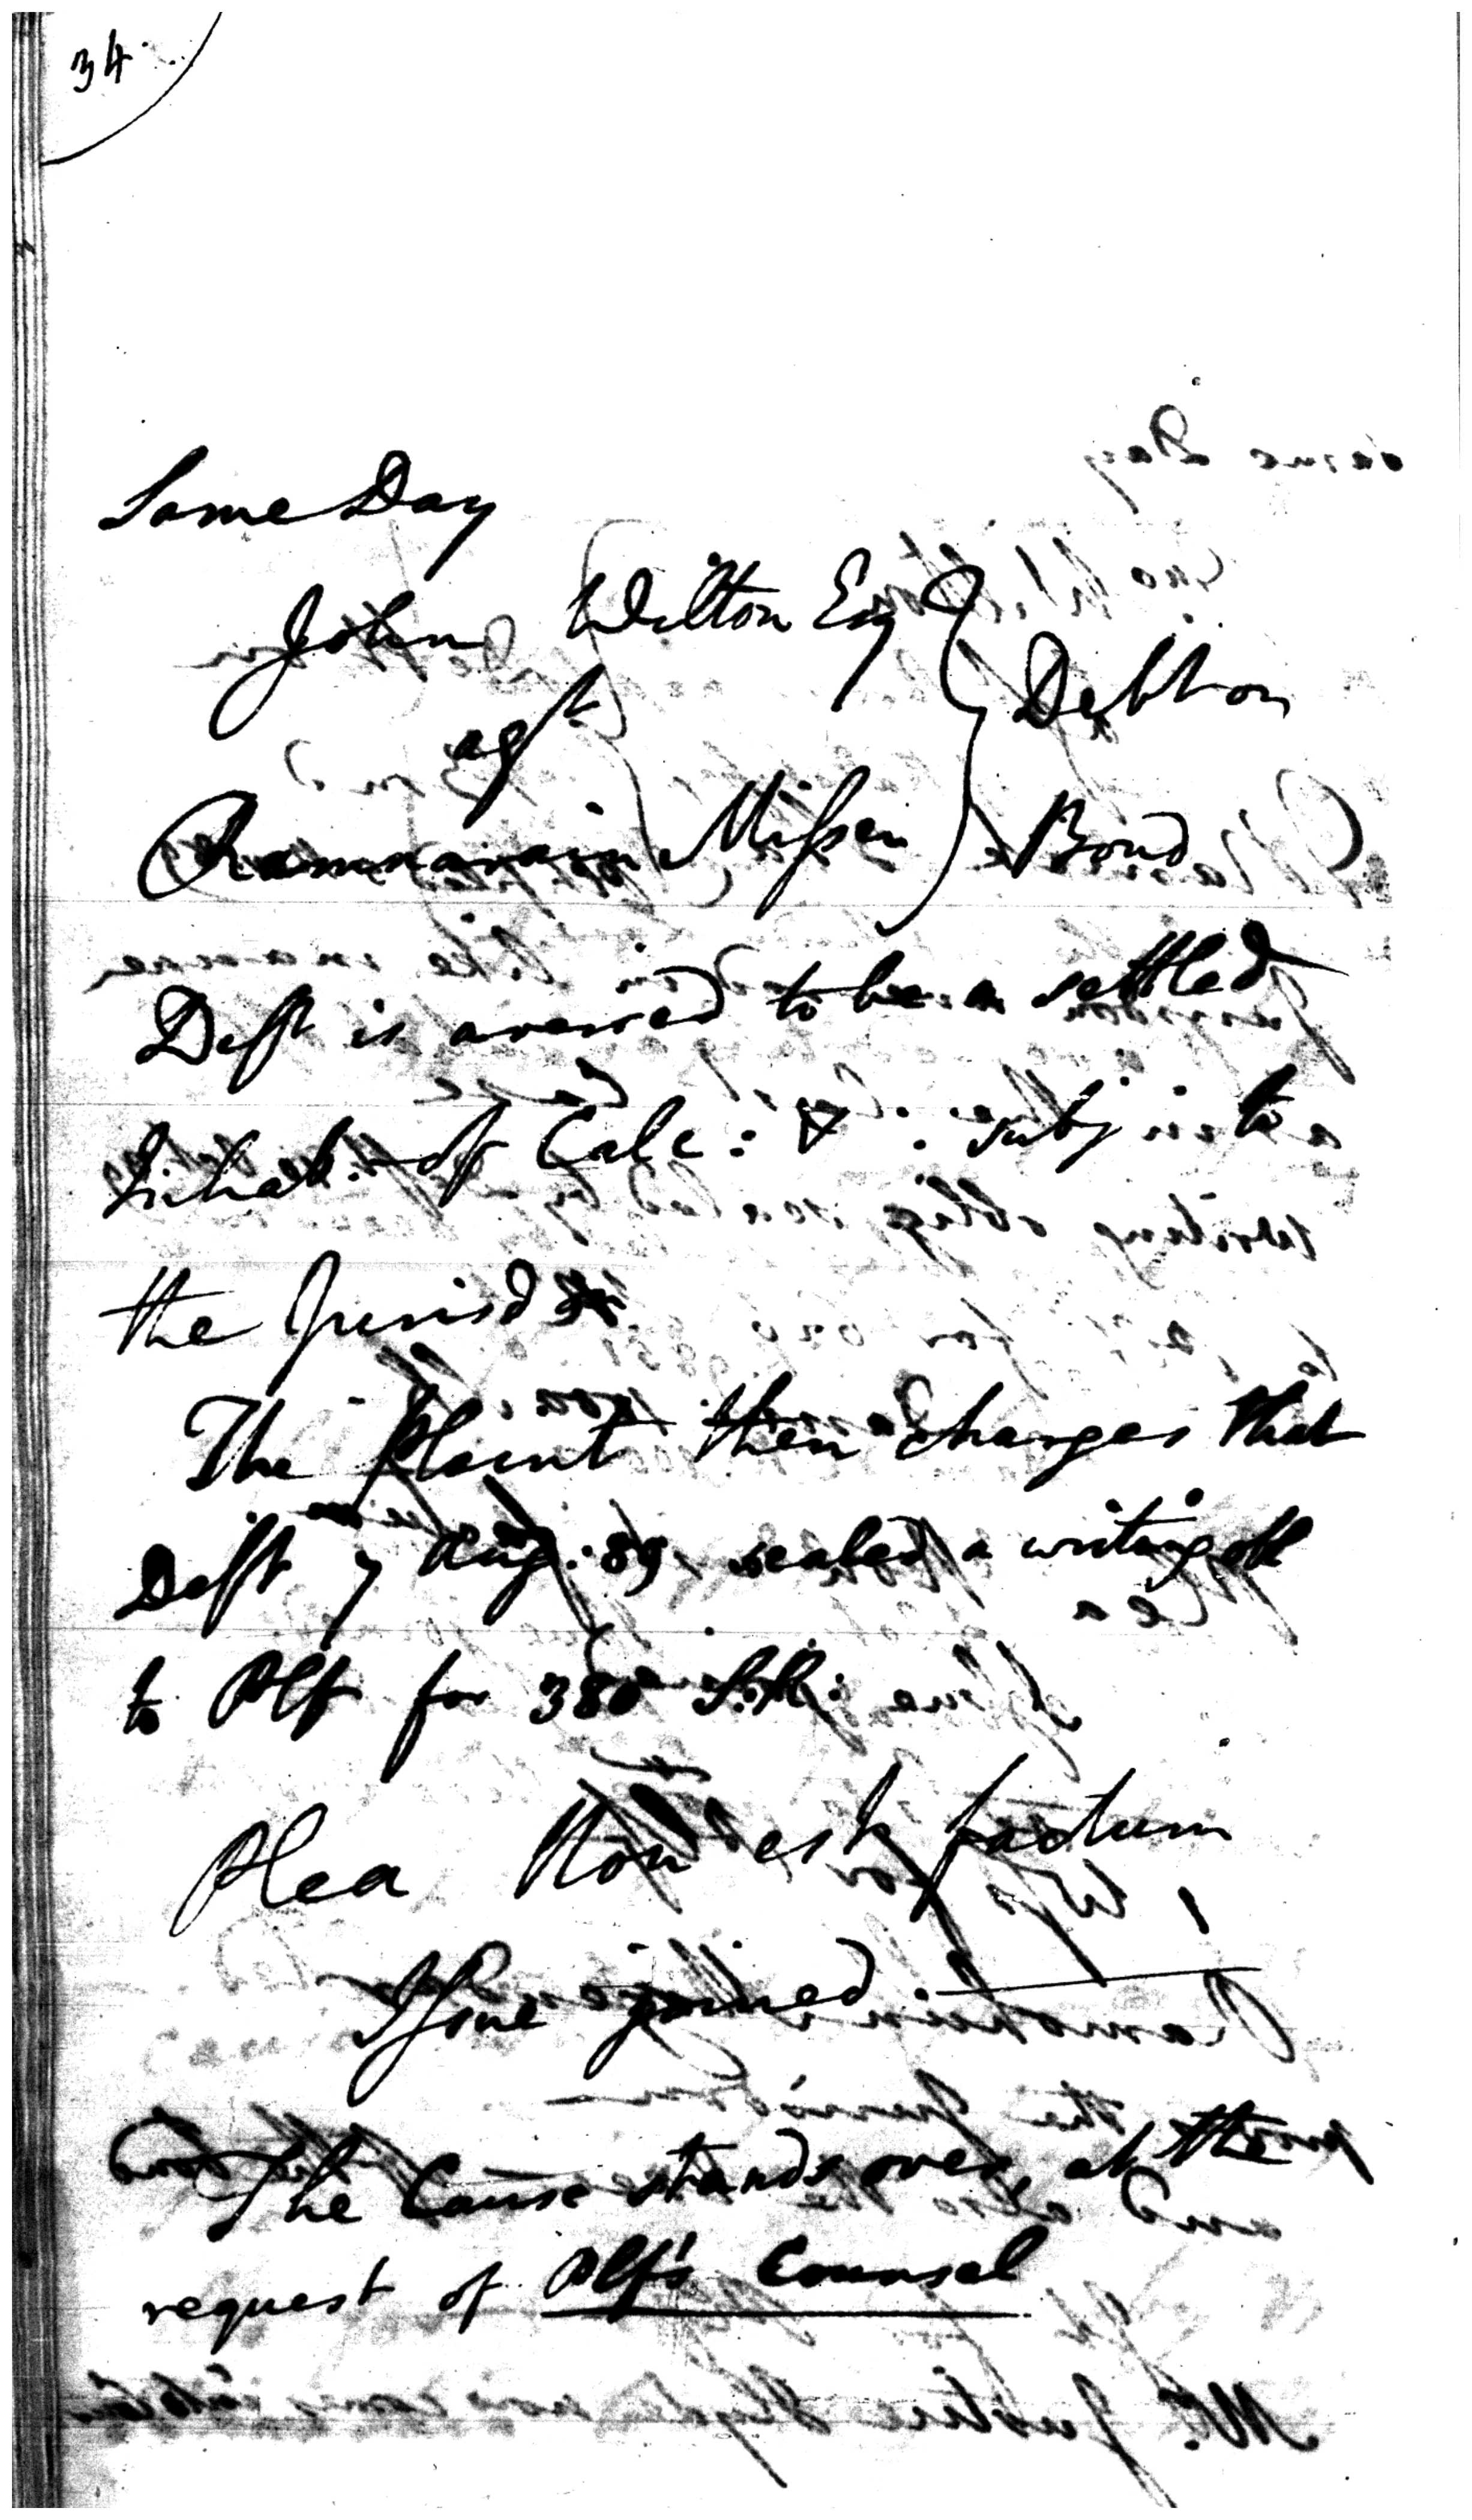 34
Same Day
John Wilton Esq
agt
Debt on
Ramnarain Missen
Bond
Deft is averred to be a settled
Inhab. of Calc: & : subj to
the Jurisd
The Plaint then charges that
Deft 7 Aug: 89 sealed a writing
to Plf for 380 S.R:
Plea Non est factum
Issue joined
The Cause stands over at the
request of Plf's Counsel